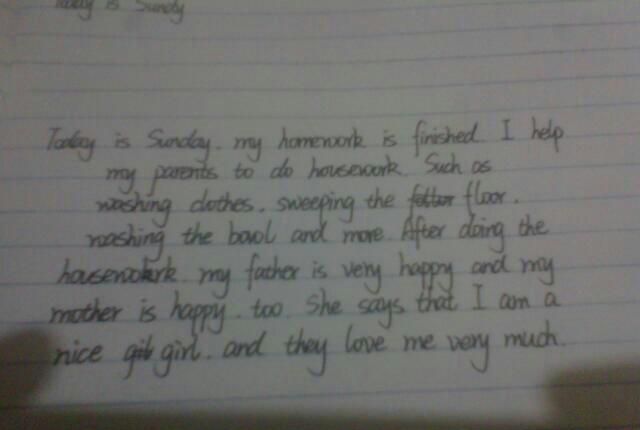 Today is Sundy
Today is Sunday. my homework is finished. I help
my parents to do housework. Such as
washing clothes. sweeping the floor.
washing the bowl and more. After doing the
housework. my father is very happy and my
mother is happy. too. She says that I am a
nice girl. and they love me very much.